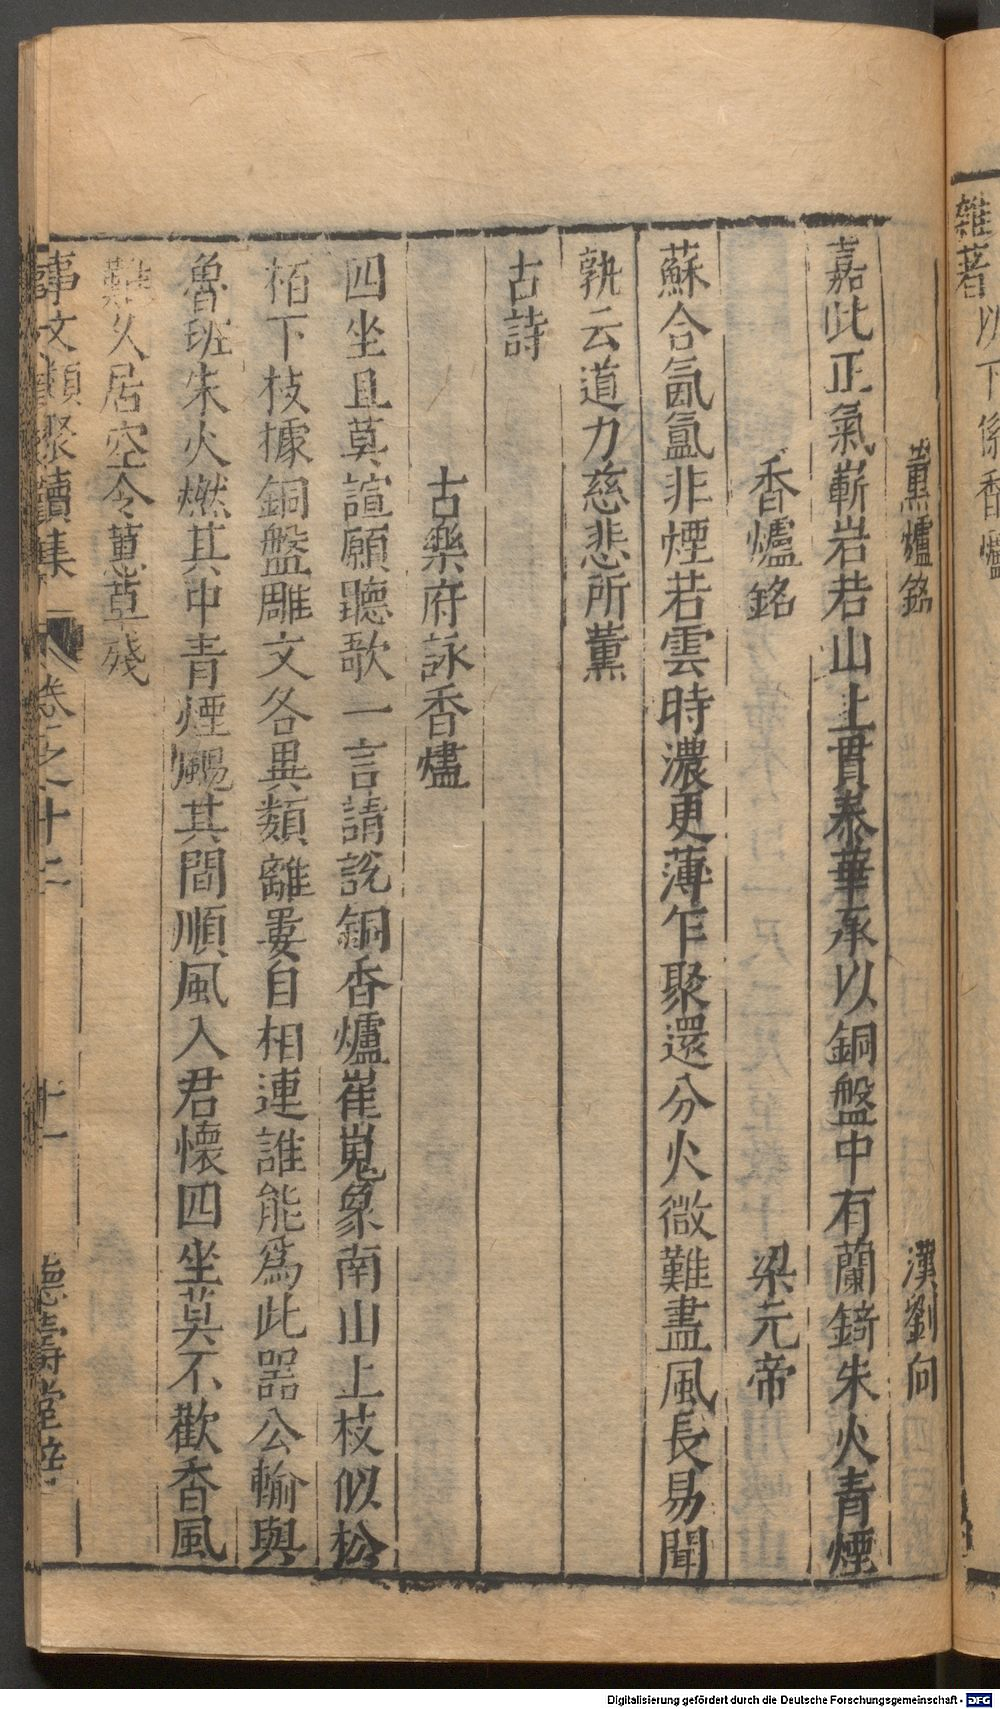 雜著以下係香爐
薰爐銘 漢劉向
嘉此正氣嶄岩若山上貫泰華承以銅盤中有蘭錡朱火青煙
香爐銘 梁元帝
蘇合氤氳非煙若雲時濃更薄乍聚還分火微難盡風長易聞
孰云道力慈悲所薰
古詩
古樂府詠香爐
四坐且莫諠願聽歌一言請說銅香爐崔嵬象南山上枝似松
栢下枝據銅盤雕文各異類離婁自相連誰能為此噐公輸與
魯班朱火燃其中青煙颺其間順風入君懷四坐莫不歡香風
難久居空令蕙草殘
事文類聚續集 卷之十二 十一 德壽堂梓
Digitalisierung gefördert durch die Deutsche Forschungsgemeinschaft - DFG